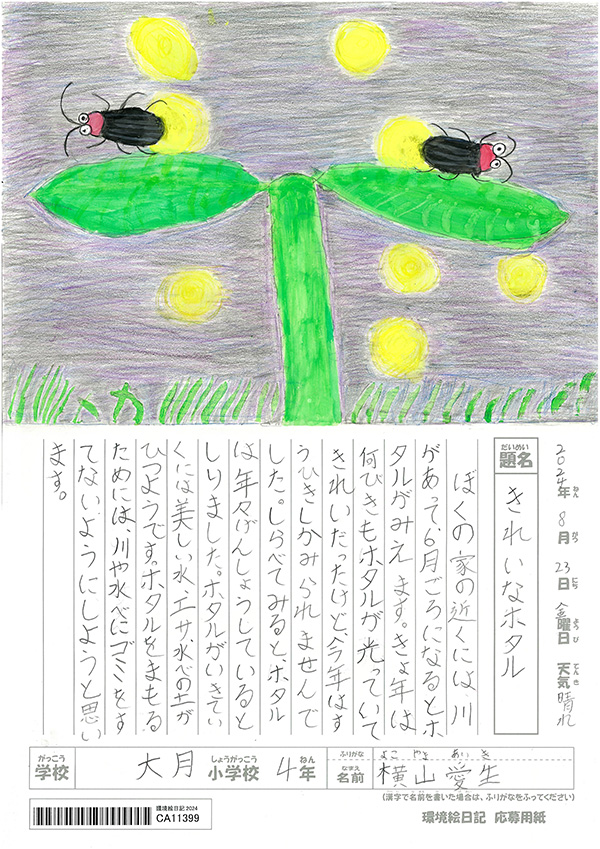 2024年 8月 23日 金曜日 天気 晴れ
ねん がつ にち ようび てんき
だいめい
題名
きれいなホタル
ぼくの家の近くには、川
があって、6月ごろになるとホ
タルがみえます。きょ年は
何びきもホタルが光っていて
きれいだったけど、今年はす
うひきしかみられませんで
した。しらべてみると、ホタル
は年々げんしょうしていると
しりました。ホタルがいきてい
くには美しい水、エサ、水べの土が
ひつようです。ホタルをまもる
ためには、川や水べにゴミをす
てないようにしようと思い
ます。
がっこう しょうがっこう ねん
学校 大月 小学校 4年
ふりがな よこ やま あい き
なまえ
名前 横山愛生
(漢字で名前を書いた場合は、ふりがなをふってください)
環境絵日記2024
CA11399
環境絵日記 応募用紙